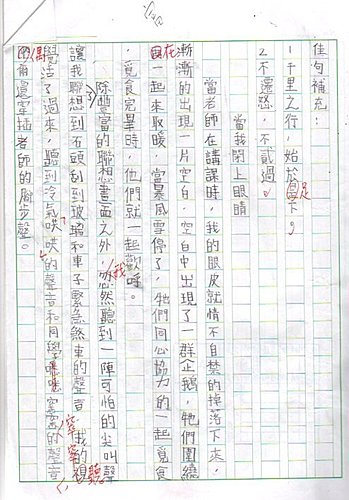 佳句補充：
1千里之行，始於足下。
2.不遷怒，不貳過。
當我閉上眼睛
當老師在講課時，我的眼皮就情不自禁的掉落下來，
漸漸的出現一片空白，空白中出現了一群企鵝，牠們圍繞
在一起來取暖，當暴風雪停了，牠們同心協力的一起覓食
，覓食完畢時，他們就一起歡呼。
除豐富的聯想畫面之外，我忽然聽到一陣可怕的尖叫聲
讓我聯想到石頭刮到玻璃和車子緊急煞車的聲音，我的聽
覺活了過來，聽到冷氣的聲音和同學窸窣的聲音
，偶爾還穿插老師的腳步聲。